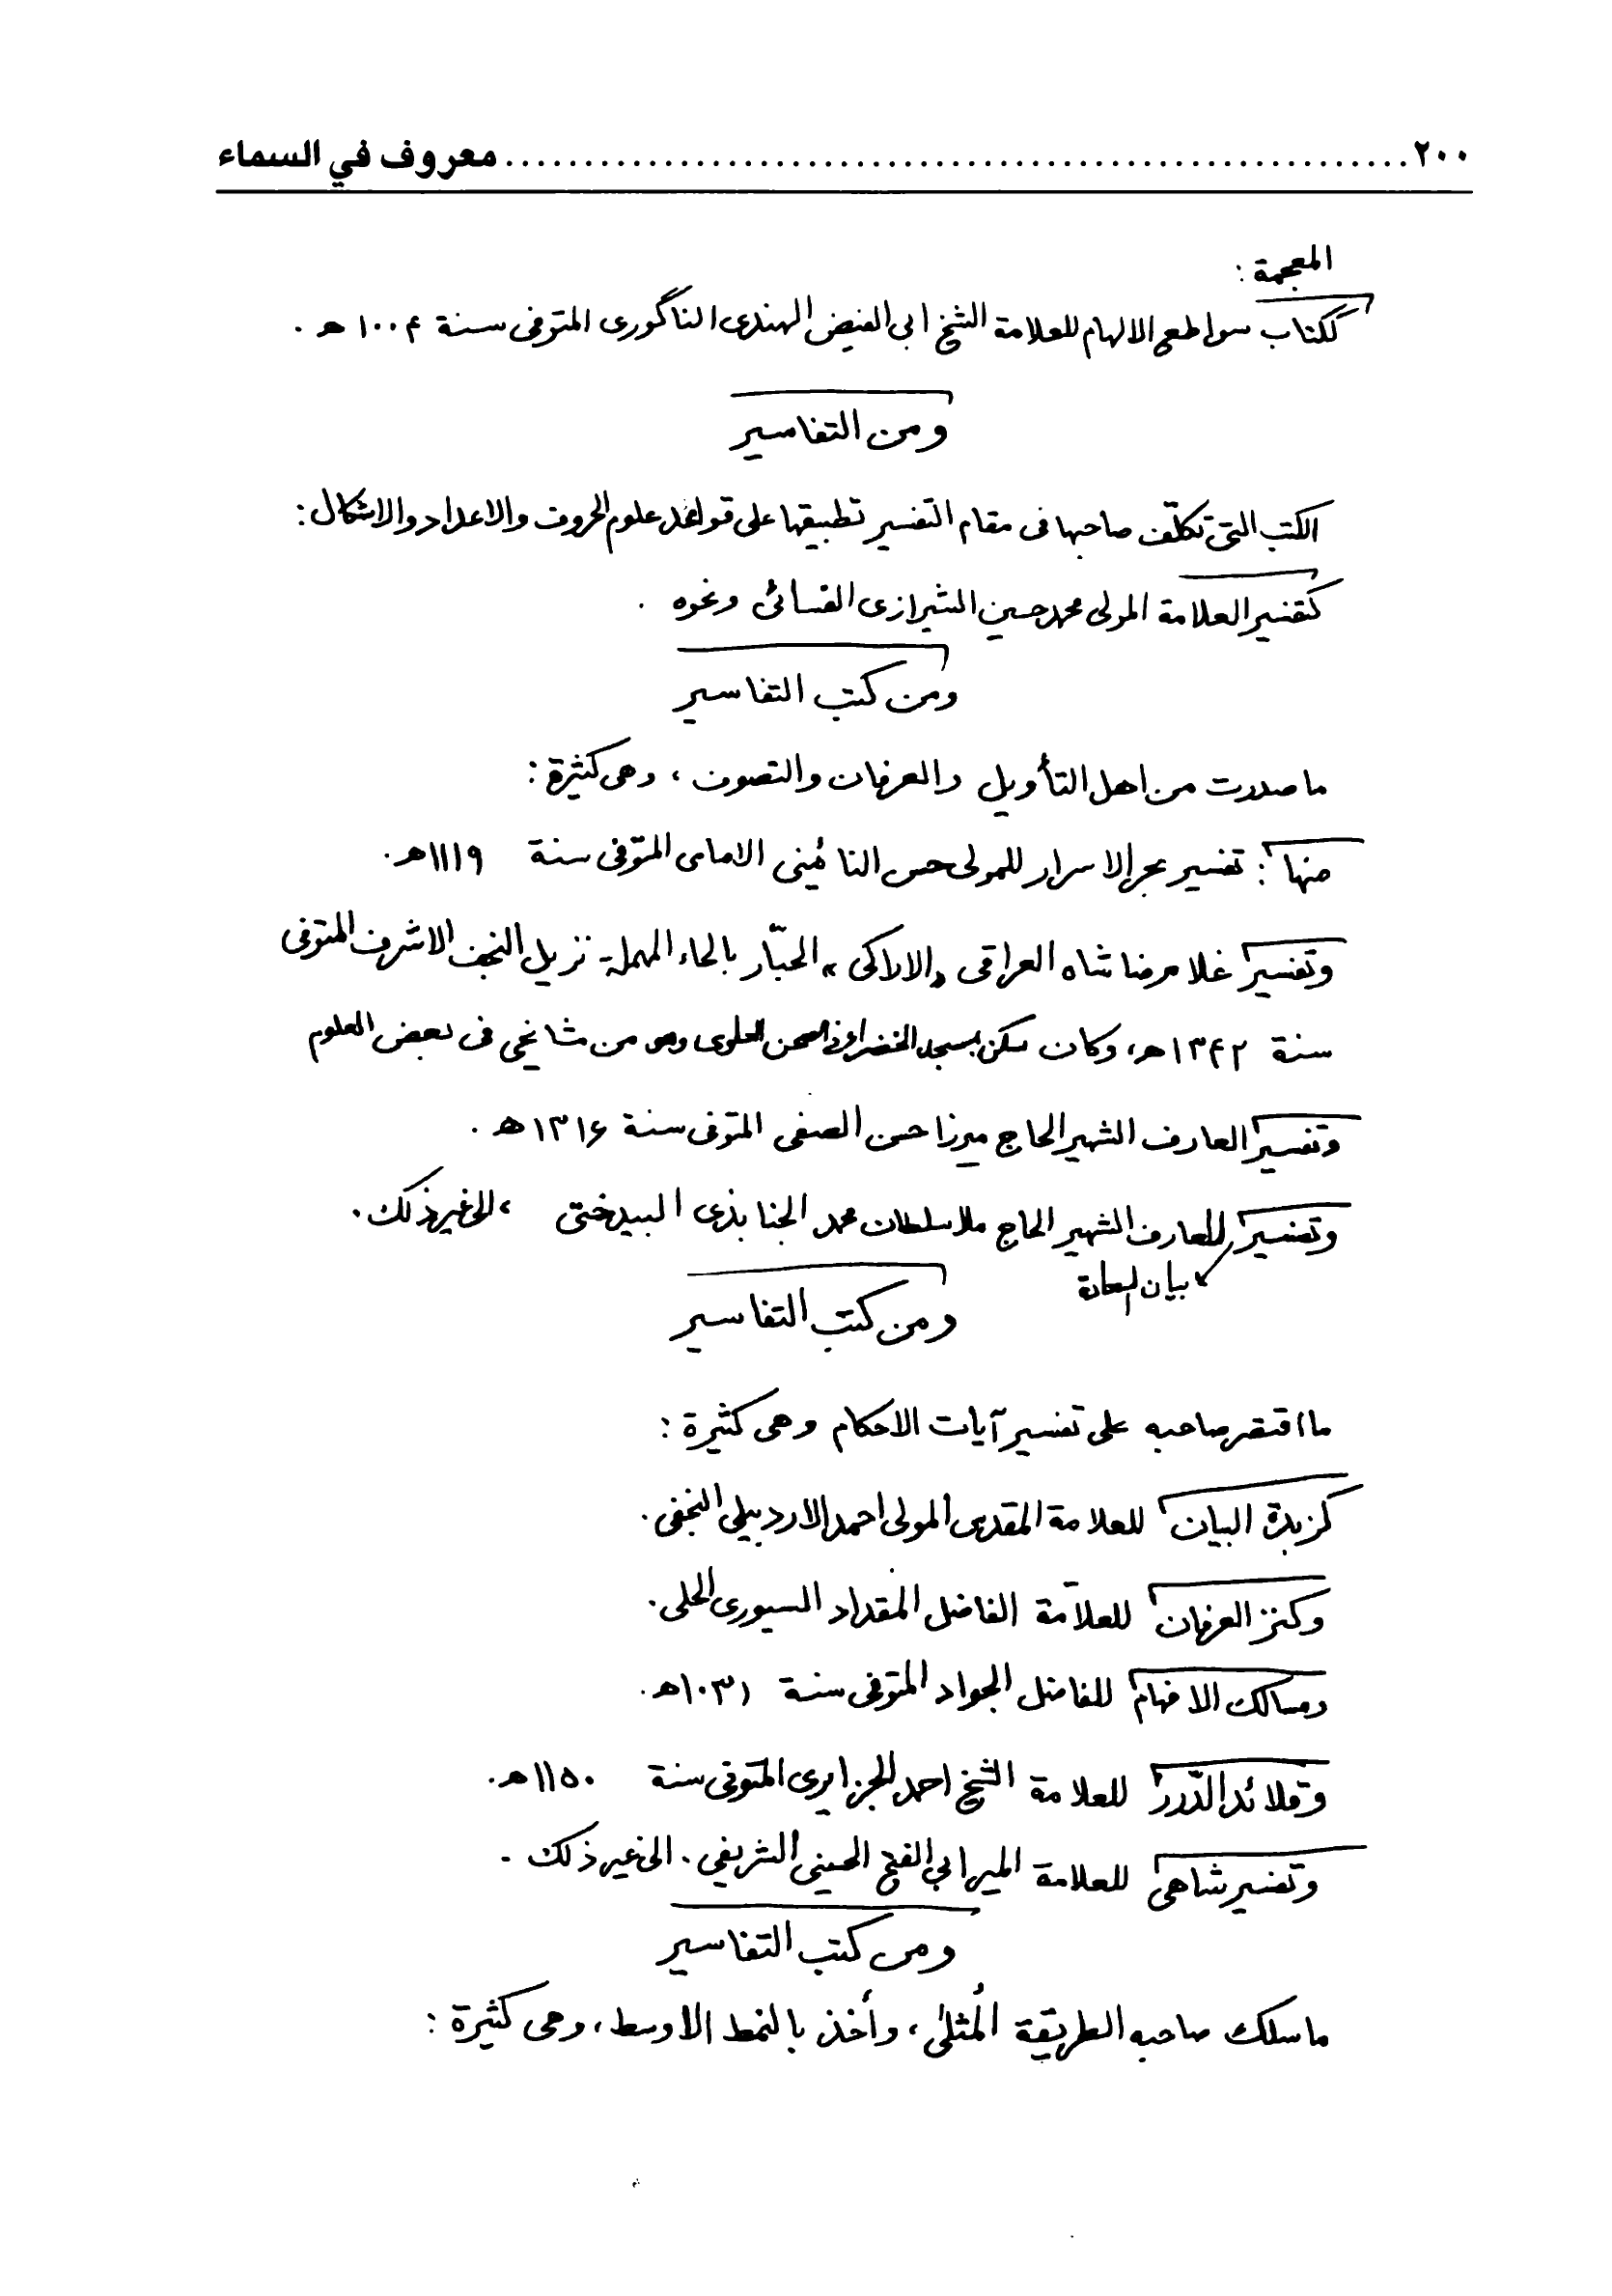 ٢٠٠ ........................................................ معروف في السماء
المعجمة :
ككتاب سواطع الالهام للعلامة الشيخ ابى الفيض الهندى الناگورى المتوفى سنة ١٠٠۴ هـ .
ومن التفاسير
الكتب التى تكلّف صاحبها فى مقام التفسير تطبيقها على قواعد علوم الحروف والاعداد والاشكال :
كتفسير العلامة المولى محمد حسين الشيرازى الفسائى ونحوه .
ومن كتب التفاسير
ما صدرت من اهل التأويل والعرفان والتصوف ، وهى كثيرة :
منها : تفسير بحر الاسرار للمولى حسن النائينى الامامى المتوّفى سنة ١١١٩هـ.
وتفسير غلامرضا شاه العراقى «الاراكى» الحبّار بالحاء المهملة نزيل النجف الاشرف المتوفى
سنة ١٣۴٢هـ، وكان يسكن بمسجد الخضراء فى الصحن العلوى وهو من مشائخى فى بعض العلوم
وتفسير العارف الشهير الحاج ميرزا حسن الصفى المتوفى سنة ١٣١۶هـ .
وتفسير للعارف الشهير الحاج ملا سلطان محمد الجنابذى البيدختى ، الى غير ذلك .
بيان السعادة
ومن كتب التفاسير
ما اقتصر صاحبه على تفسير آيات الاحكام وهى كثيرة :
كزبدة البيان للعلامة المقدس المولى احمد الاردبيلى النجفى .
وكنز العرفان للعلاّمة الفاضل المقداد السيورى الحلى .
ومسالك الافهام للفاضل الجواد المتوفى سنة ١٠٣١هـ.
وقلائد الدّرر للعلامة الشيخ احمد الجزايرى المتوفى سنة ١١٥٠هـ.
وتفسير شاهى للعلامة المير ابى الفتح الحسينى الشريفى . الى غير ذلك .
ومن كتب التفاسير
ما سلك صاحبه الطريقة المُثلىٰ ، وأخذ بالنمط الاوسط ، وهى كثيرة :